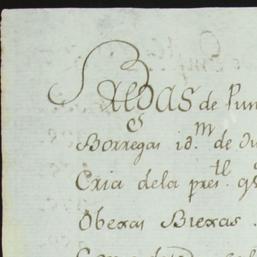 Baldas de Pun
Borregas id.m de Du
Cria dela pres.te q
Obexas Biexas .